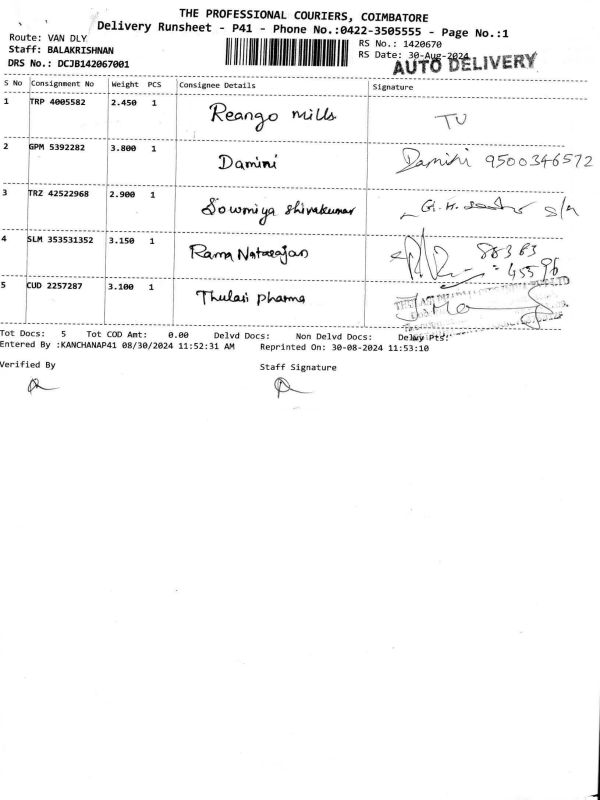 THE PROFESSIONAL COURIERS, COIMBATORE
Delivery Runsheet - P41 - Phone No.:0422-3505555 - Page No.:1
Route: VAN DLY
Staff: BALAKRISHNAN
DRS No.: DCJB142067001
RS No.: 1420670
RS Date: 30-Aug-2024
AUTO DELIVERY
S No Consignment No Weight PCS Consignee Details Signature
1 TRP 4005582 2.450 1 Reango mills TU
2 GPM 5392282 3.800 1 Damini Damini 9500346572
3 TRZ 42522968 2.900 1 Sowmiya Shivakumar
4 SLM 353531352 3.150 1 Rama Natarajan 88363
45596
5 CUD 2257287 3.100 1 Thulasi Pharma
Tot Docs: 5 Tot COD Amt: 0.00 Delvd Docs: Non Delvd Docs: Delvy Pts:
Entered By :KANCHANAP41 08/30/2024 11:52:31 AM Reprinted On: 30-08-2024 11:53:10
Verified By
Staff Signature